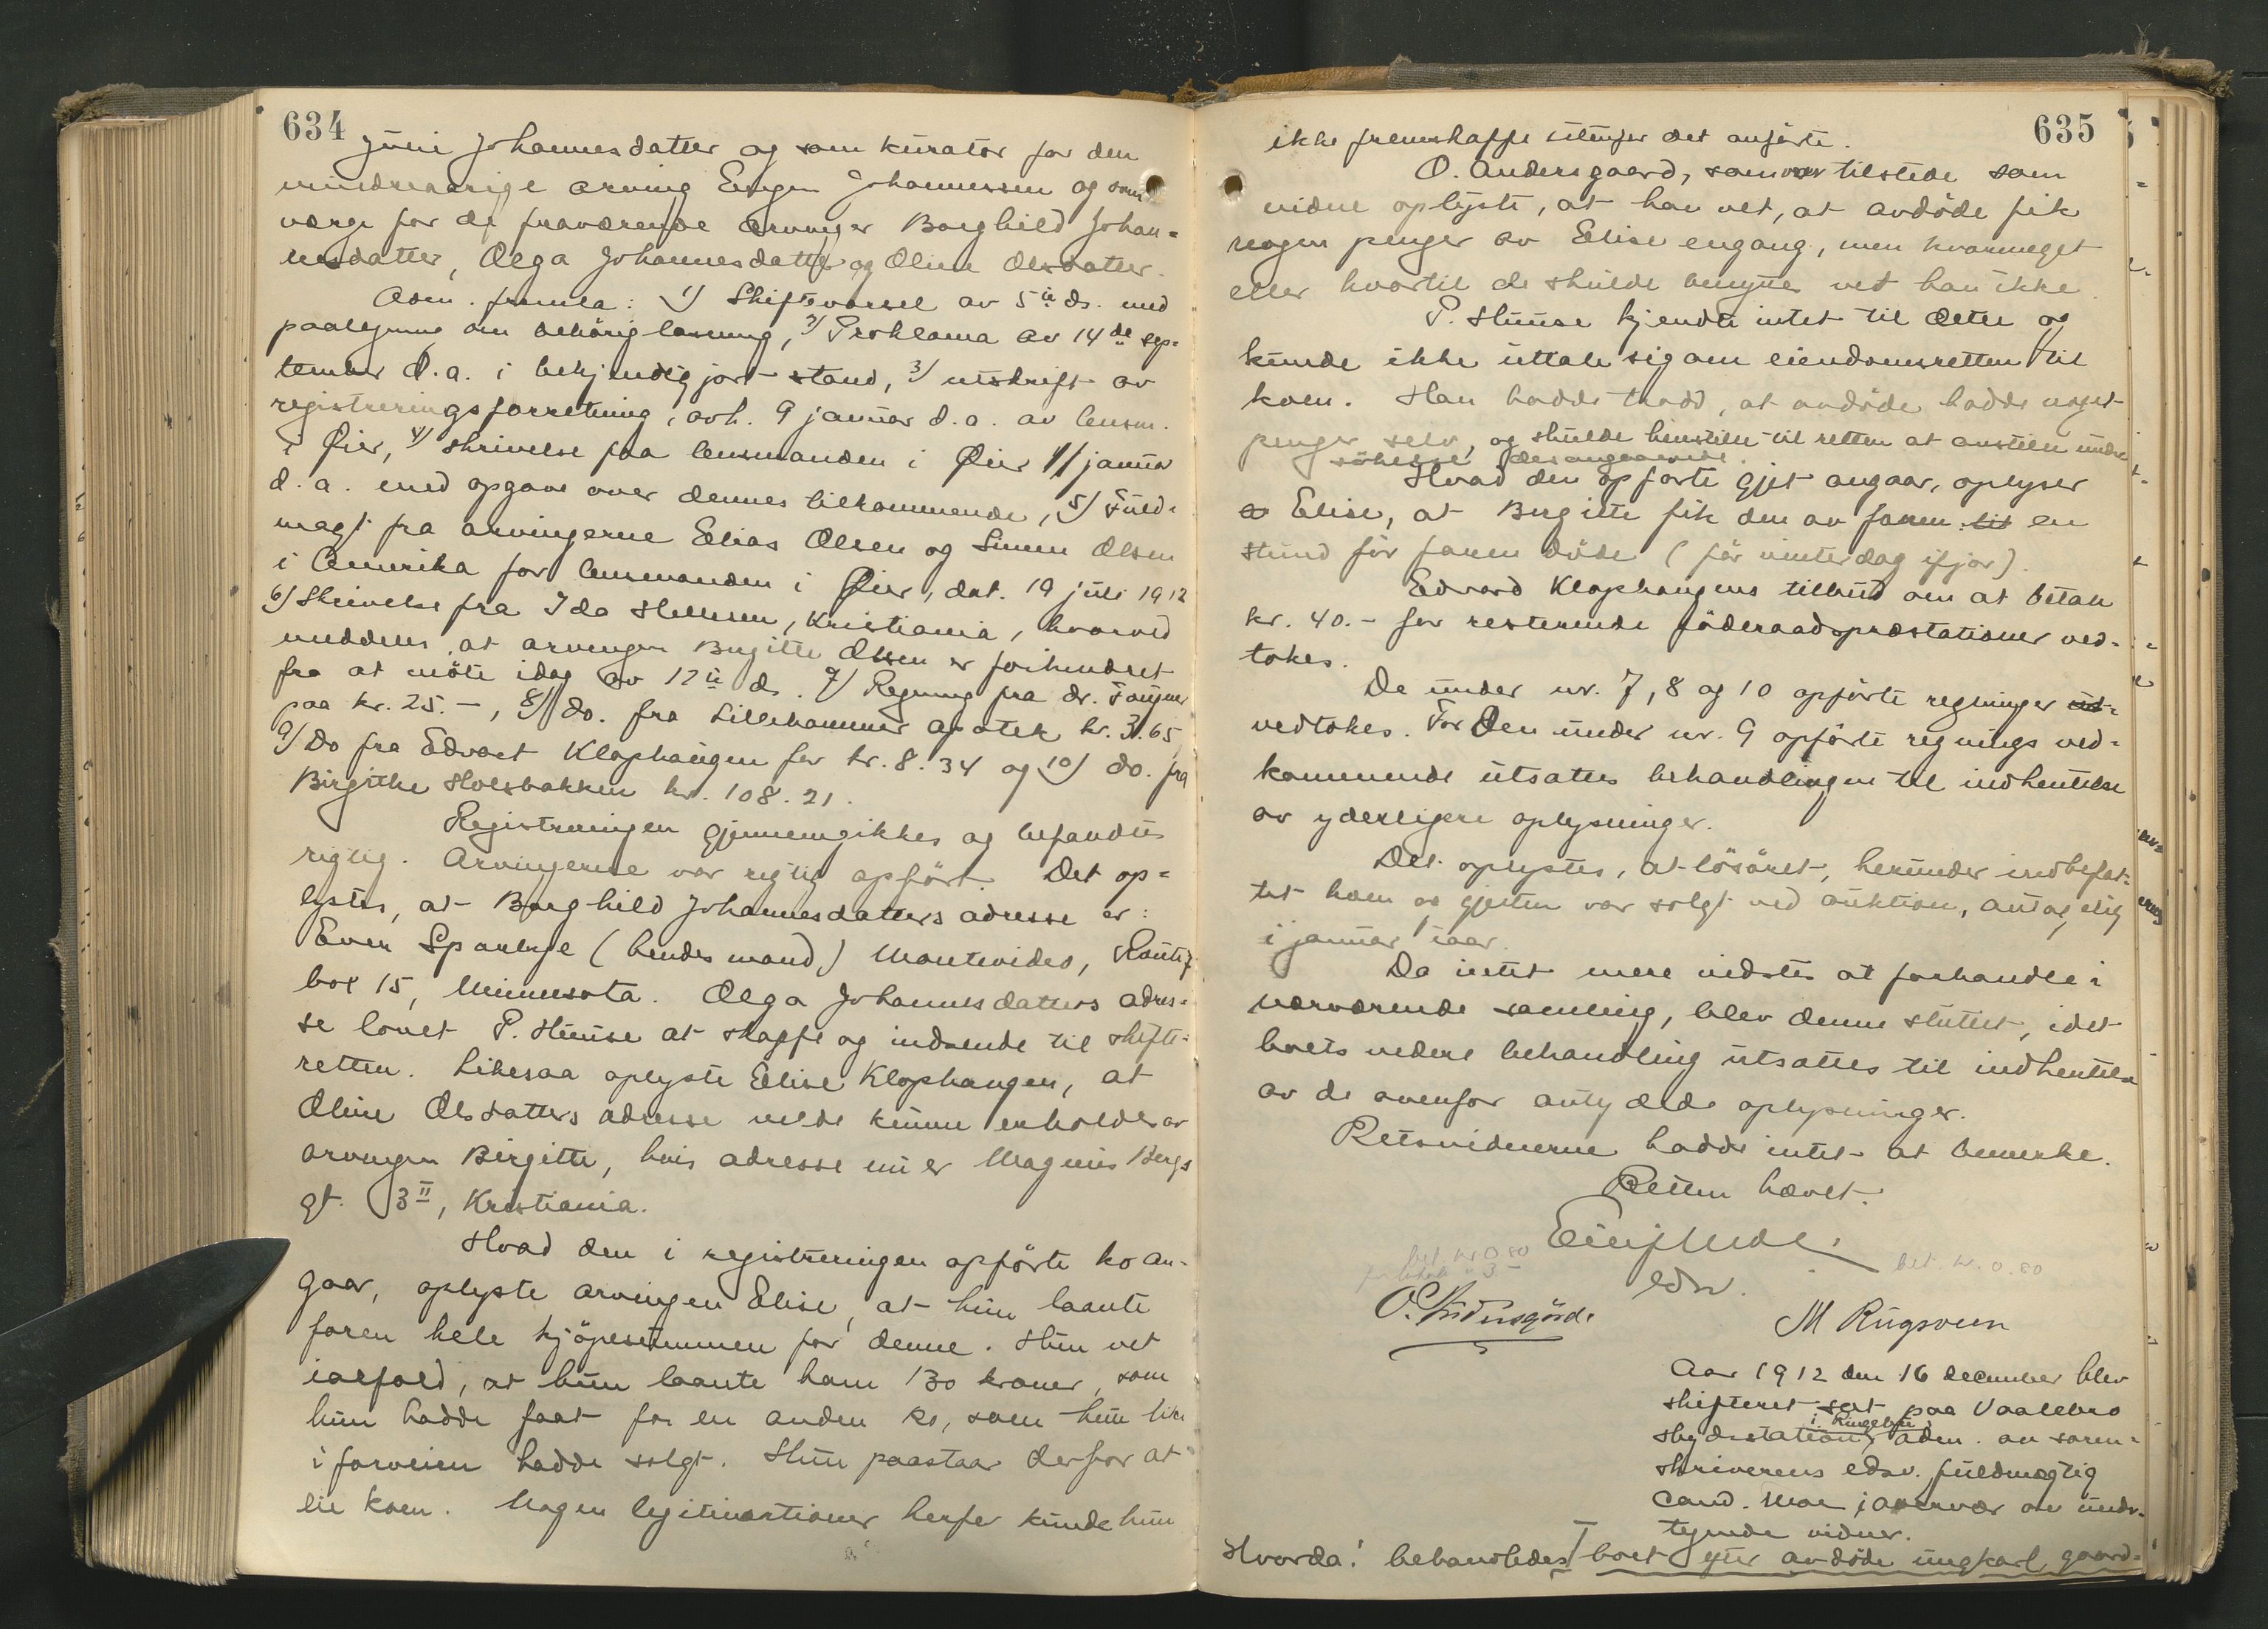 634
Juni Johannesdatter og som kurator for den
mindreaarige arving Eugen Johannessen og som
værge for de fraværende arvinger Borghild Johan=
nesdatter, Olga Johannesdatter og Oline Olsdatter.
Adm. fremla: 1) Skiftevarsel av 5te ds. med
paategning om behörig lovning, 2) Proklama av 14de sep=
tember d.a. i bekjendtgjort stand, 3) utskrift av
registreringsforretning, avh. 9 januar d.a. av lensm.
i Øier, 4) skrivelse fra lensmanden i Øier 11/ januar
d.a. med opgave over dennes tilkommende, 5) Fuld=
magt fra arvingerne Elias Olsen og Simen Olsen
i Amerika for lensmanden i Øier, dat. 19 juli 1912
6) Skrivelse fra Ida Hellesen, Kristiania, hvorved
meddeles, at arvingen Birgitte Olsen er forhindret
fra at möte idag av 12te ds. 7) Regning fra dr. Fougner
paa kr. 25.-, 8) do. fra Lillehammer apotek kr. 3.65
9) Do fra Edvart Klophaugen for kr. 8.34 og 10) do. fra
Birgithe Holsbakken kr. 108.21.
Registreringen gjennemgikkes og befandtes
rigtig. Arvingerne var rigtig opført. Det op=
lystes, at Borghild Johannesdatters adresse er:
Even Sparlye (hendes mand) Montevideo, Route 7
box 15, Minnesota. Olga Johannesdatters adres=
se lovet P. Huuse at skaffe og indsende til skifte=
retten. Likesaa oplyste Elise Klophaugen, at
Oline Olsdatters adresse vilde kunne erholdes av
arvingen Birgitte, hvis adresse nu er Magnus Bergs
gt. 3 II, Kristiania.
Hvad den i registreringen opförte ko an-
gaar, oplyste arvingen Elise, at hun laante
faren hele kjöpesummen for denne. Hun vet
ialfald, at hun laante ham 130 kroner, som
hun hadde faat for en anden ko, som hun like
i forveien hadde solgt. Hun paastaar derfor at
eie koen. Nogen legitimationer herfor kunde hun
635
ikke fremskaffe utenfor det anförte.
O. Andersgaard, som var tilstede som
vidne oplyste, at han vet, at avdöde fik
nogen penger av Elise engang, men hvormeget
eller hvortil de skulde benyttes vet han ikke.
P. Huuse kjendte intet til dette og
kunde ikke uttale sig om eiendomsretten til
koen. Han hadde trodd, at avdöde hadde noget
penger selv, og skulde henstille til retten at anstille under
sökelse desangaaende.
Hvad den opförte gjet angaar, oplyser
Elise, at Birgitte fik den av faren til en
stund för faren döde (för vinterdag ifjor).
Edvard Klophaugens tilbud om at betale
kr. 40.- for resterende föderaadspræstationer ved-
tokes.
De under nr. 7, 8 og 10 opförte regninger ut=
vedtokes. For den under nr. 9 opförte regnings ved=
kommende utsattes behandlingen til indhentelse
av yderligere oplysninger.
Det oplystes, at lösöret, herunder indbefat=
tet koen og gjeiten var solgt ved auktion, antagelig
i januar iaar.
Da intet mere vidstes at forhandle i
nærværende samling, blev denne sluttet, idet
boets videre behandling utsattes til indhentelse
av de ovenfor antydede oplysninger.
Retsvidnerne hadde intet at bemerke.
Retten hævet.
bet. kr. 0.80
bet. kr. 0.80
edsv.
O. Andersgård.
M Rugsveen
Aar 1912 den 16 december blev
skifteret sat paa Vaalebro
i Ringebu
skydsstation, adm. av soren=
skriverens edsv. fuldmægtig
cand. Moe i overvær av under-
tegnede vidner.
Hvorda! behandledes boet efter avdöde ungkarl, gaard=